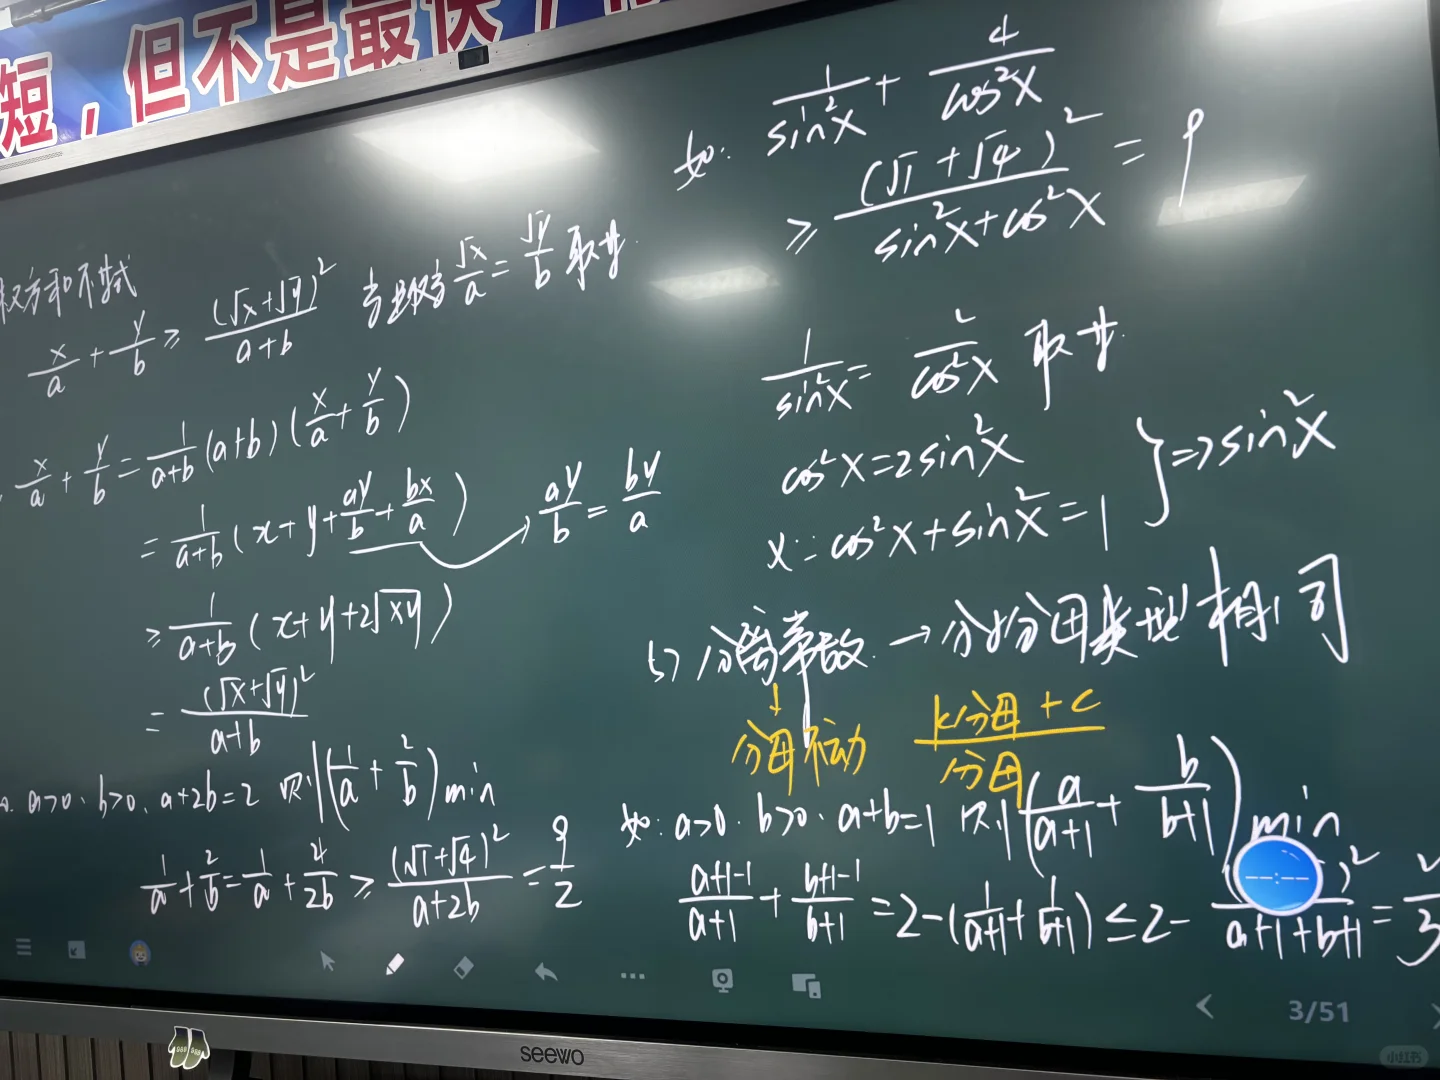 短，但不是最快
权方和不等式
x/a + y/b ≥ (√x+√y)²/(a+b) 当且仅当 √x/a = √y/b 取等.
x/a + y/b = 1/(a+b) (a+b) (x/a + y/b)
= 1/(a+b) (x+y+ ay/b + bx/a) → ay/b = by/a
≥ 1/(a+b) (x+y+2√xy)
= (√x+√y)²/(a+b)
a>0. b>0. a+2b=2 则 (1/a + 2/b)min
1/a + 2/b = 1/a + 4/2b ≥ (√1+√4)²/(a+2b) = 9/2
如: 1/sin²x + 4/cos²x
≥ (√1+√4)²/(sin²x+cos²x) = 9
1/sin²x = 2/cos²x 取等.
cos²x=2sin²x
x∵cos²x+sin²x=1 } ⇒ sin²x
5) 分离常数 → 分子分母类型相同
↓
分母不动 (k分母+c)/分母
如: a>0. b>0. a+b=1 则 (a/(a+1) + b/(b+1))min
(a+1-1)/(a+1) + (b+1-1)/(b+1) = 2-(1/(a+1) + 1/(b+1)) ≤ 2- )²/(a+1+b+1) = 2/3
3/51
seewo
小红书